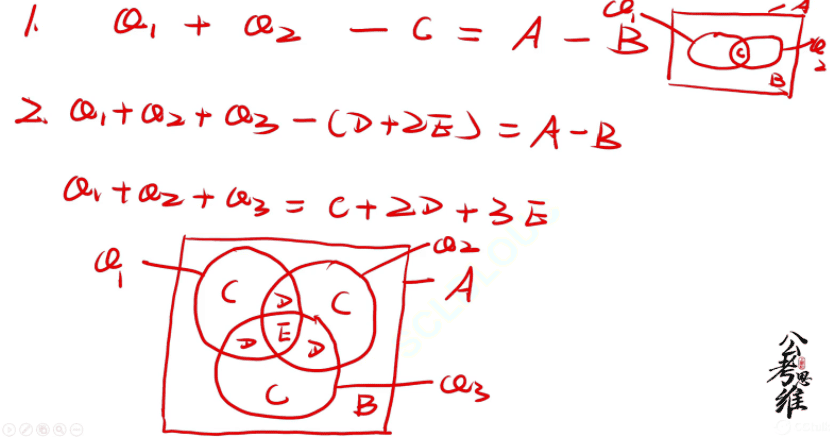 1. a₁ + a₂ - C = A - B
a₁
A
C
a₂
B
2. a₁ + a₂ + a₃ - (D + 2E) = A - B
a₁ + a₂ + a₃ = C + 2D + 3E
a₁
a₂
A
C
D
C
D
E
D
C
B
a₃
公考思维